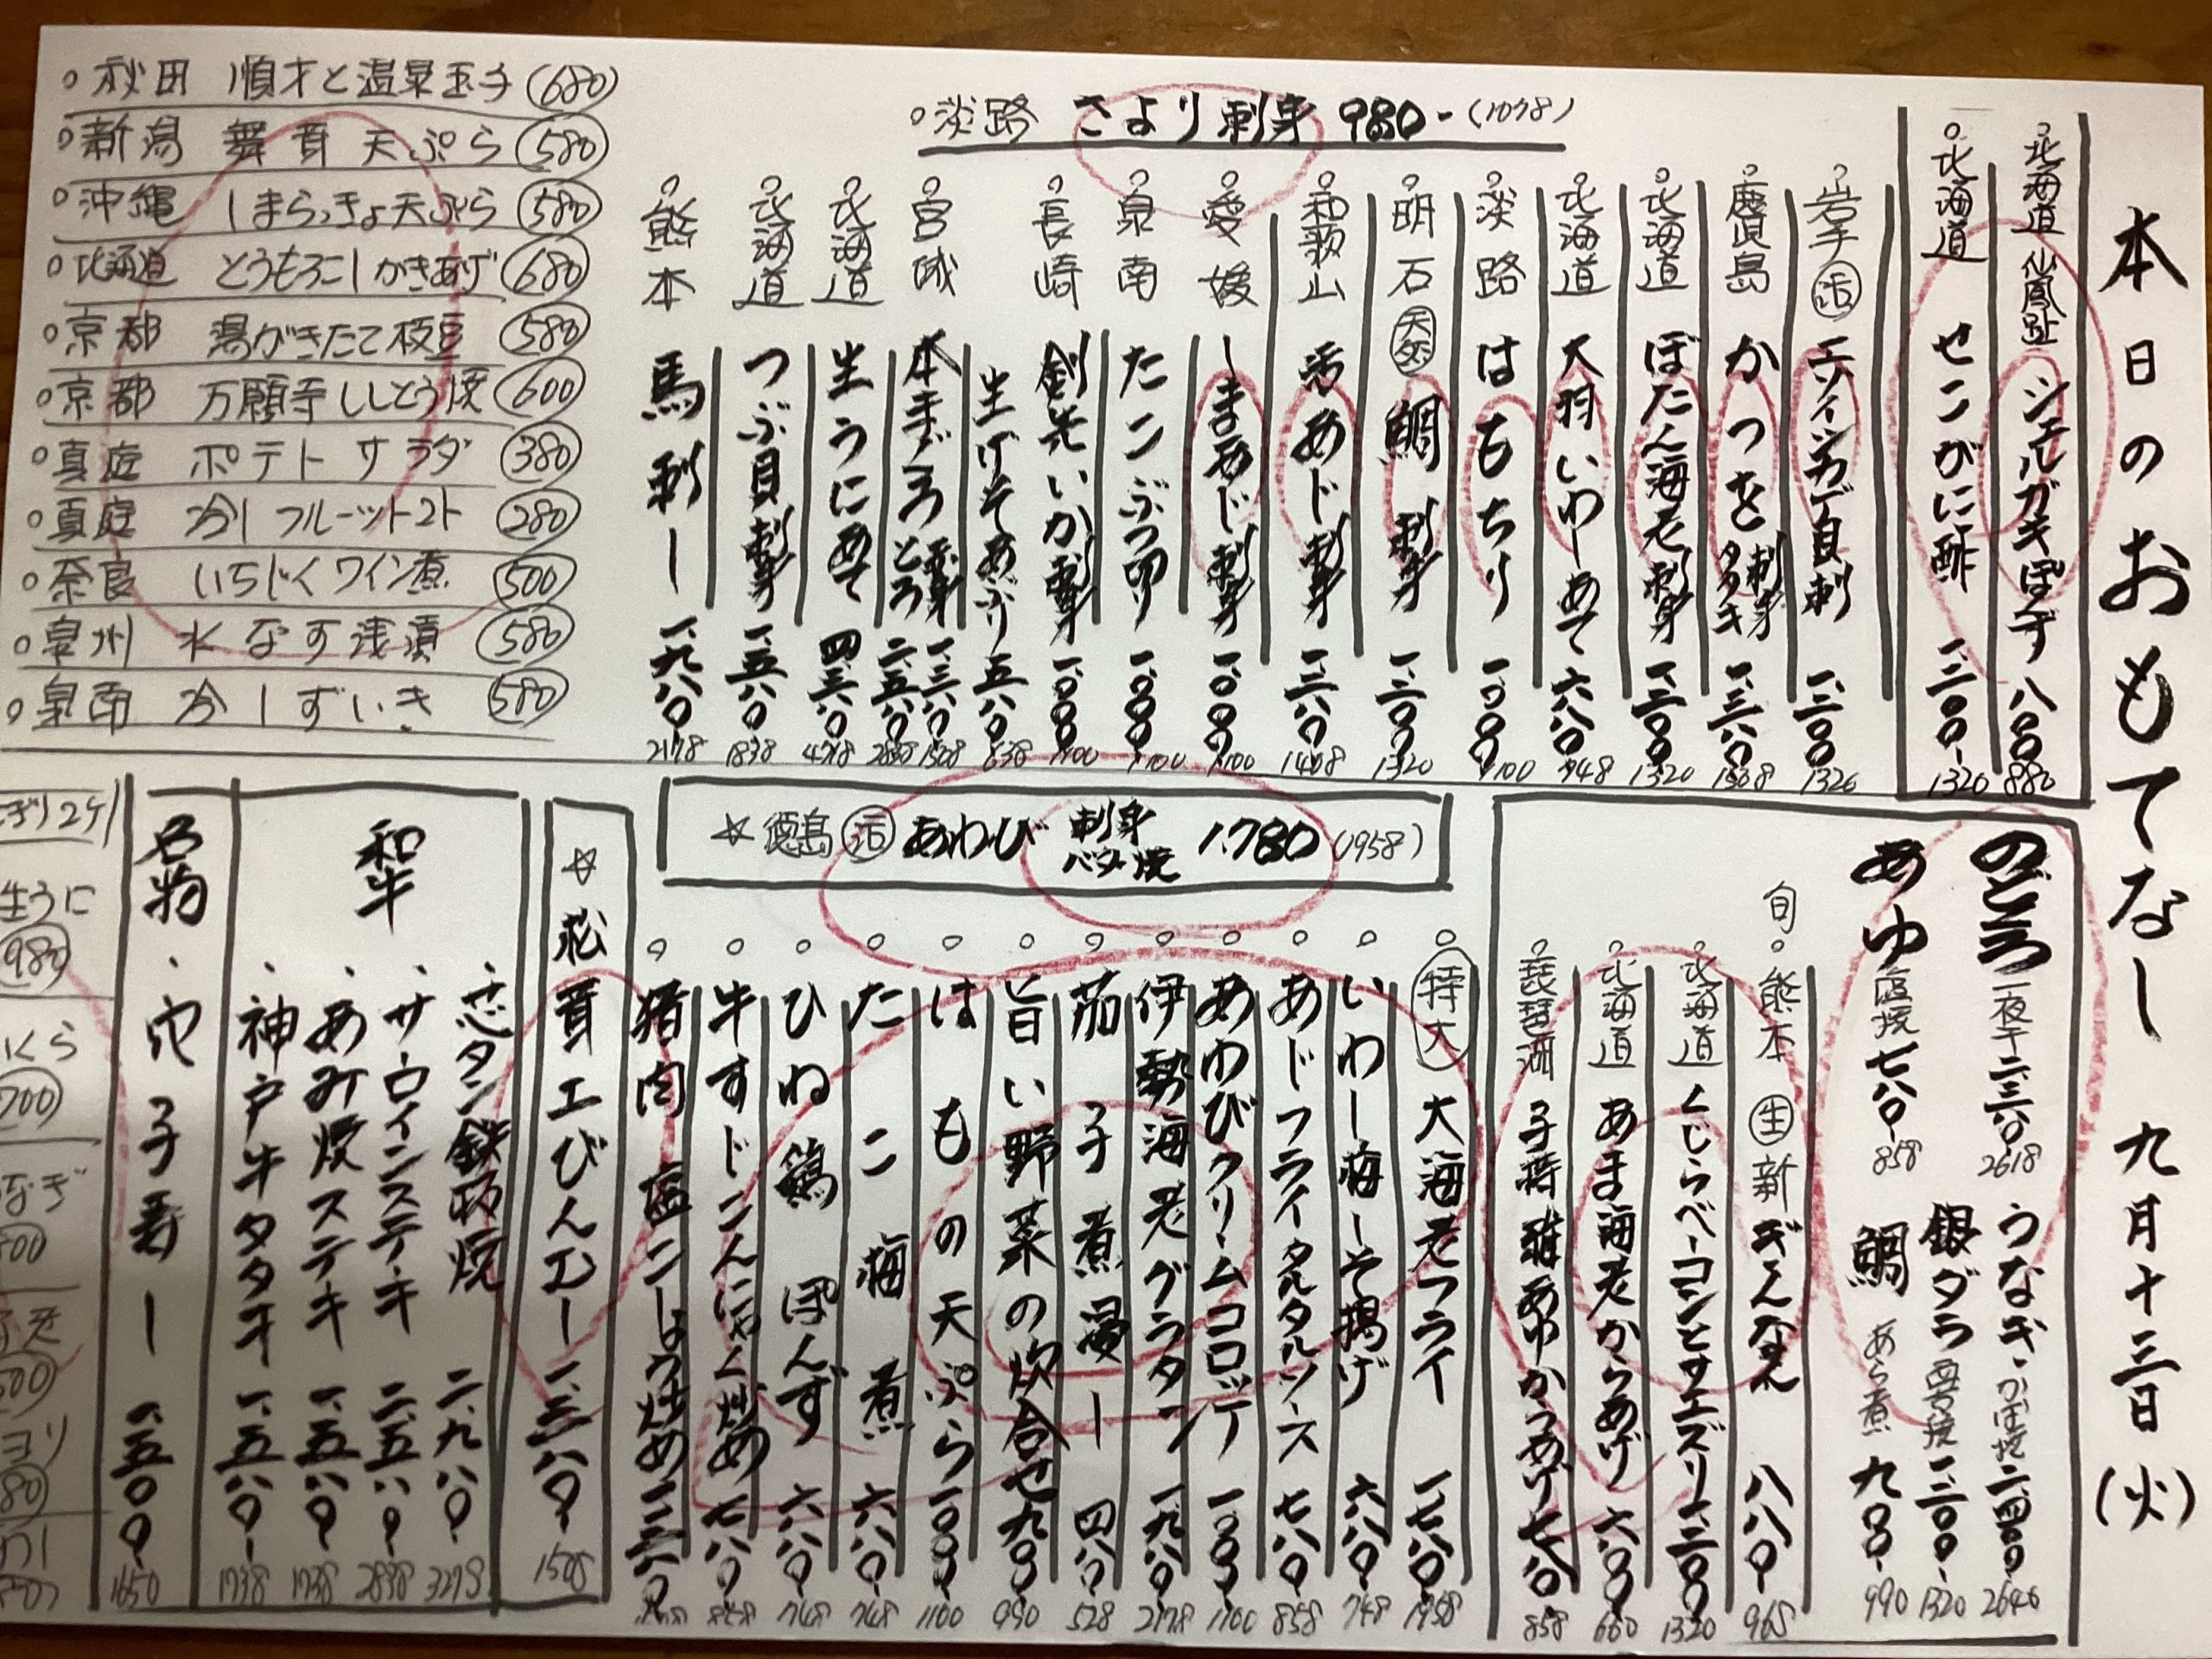 本日のおもてなし 九月十三日(火)
北海道 仙鳳趾 シェルガキぽん酢 八〇〇 880
北海道 せこがに酢 一、二〇〇- 1320
淡路 さより刺身 980-(1078)
岩手 活 エゾイシカゲ貝刺 一、二〇〇 1320
鹿児島 かつを 刺身 タタキ 一、三八〇
北海道 ぼたん海老刺身 一、二〇〇 1320
北海道 大羽いわしあて 六八〇 748
淡路 はもちり 一、〇〇〇 1100
明石 天然 鯛刺身 一、二〇〇 1320
和歌山 活あじ刺身 一、二八〇 1408
愛媛 しまあじ刺身 一、〇〇〇 1100
泉南 たこぶつ切り 一、〇〇〇 1100
長崎 剣先いか刺身 一、〇〇〇 1100
生げそあぶり 五八〇 638
宮城 本まぐろ 赤身 一、三八〇 とろ 二、五八〇
北海道 生うにあて 四、三八〇
北海道 つぶ貝刺身 一、五八〇
熊本 馬刺し 一、九八〇 2178
秋田 順才と温泉玉子 (680)
新潟 舞茸天ぷら 580
沖縄 しまらっきょ天ぷら 580
北海道 とうもろこしかきあげ 680
京都 湯がきたて枝豆 580
京都 万願寺ししとう焼 600
真庭 ポテトサラダ 380
真庭 冷しフルーツトマト 280
奈良 いちじくワイン煮 500
泉州 水なす浅漬 580
泉南 冷しずいき 580
のどぐろ 一夜干 二、三八〇 2618
あゆ 塩焼 七八〇 858
うなぎ かば焼 二、四〇〇-
銀ダラ 西京焼 一、二〇〇- 1320
鯛 あら煮 九〇〇- 990
旬 熊本 生 新ぎんなん 八八〇- 968
北海道 くじらベーコンとサエズリ 一、二〇〇 1320
北海道 あま海老からあげ 六〇〇 660
琵琶湖 子持稚あゆからあげ 七八〇 858
☆徳島 活 あわび 刺身 バター焼 1,780(1958)
特大 大海老フライ 一、七八〇- 1958
いわし梅しそ揚げ 六八〇- 748
あじフライタルタルソース 七八〇- 858
あわびクリームコロッケ 一、〇〇〇 1100
伊勢海老グラタン 一、九八〇- 2178
茄子煮浸し 四八〇 528
旨い野菜の炊合せ 九〇〇 990
はもの天ぷら 一、〇〇〇 1100
たこ梅煮 六八〇- 748
ひね鶏ぽんず 六八〇- 748
牛すじこんにゃく炒め 七八〇 858
猪肉塩こしょう炒め
☆松茸土びんむし 一、三八〇-
和牛
・芯タン鉄板焼 二、九八〇- 3278
・サーロインステーキ 二、五八〇- 2838
・あみ焼ステーキ 一、五八〇- 1738
・神戸牛タタキ 一、五八〇- 1738
名物・穴子寿し 一、五〇〇- 1650
ぎり2ケ
生うに
980
くら
700
なぎ